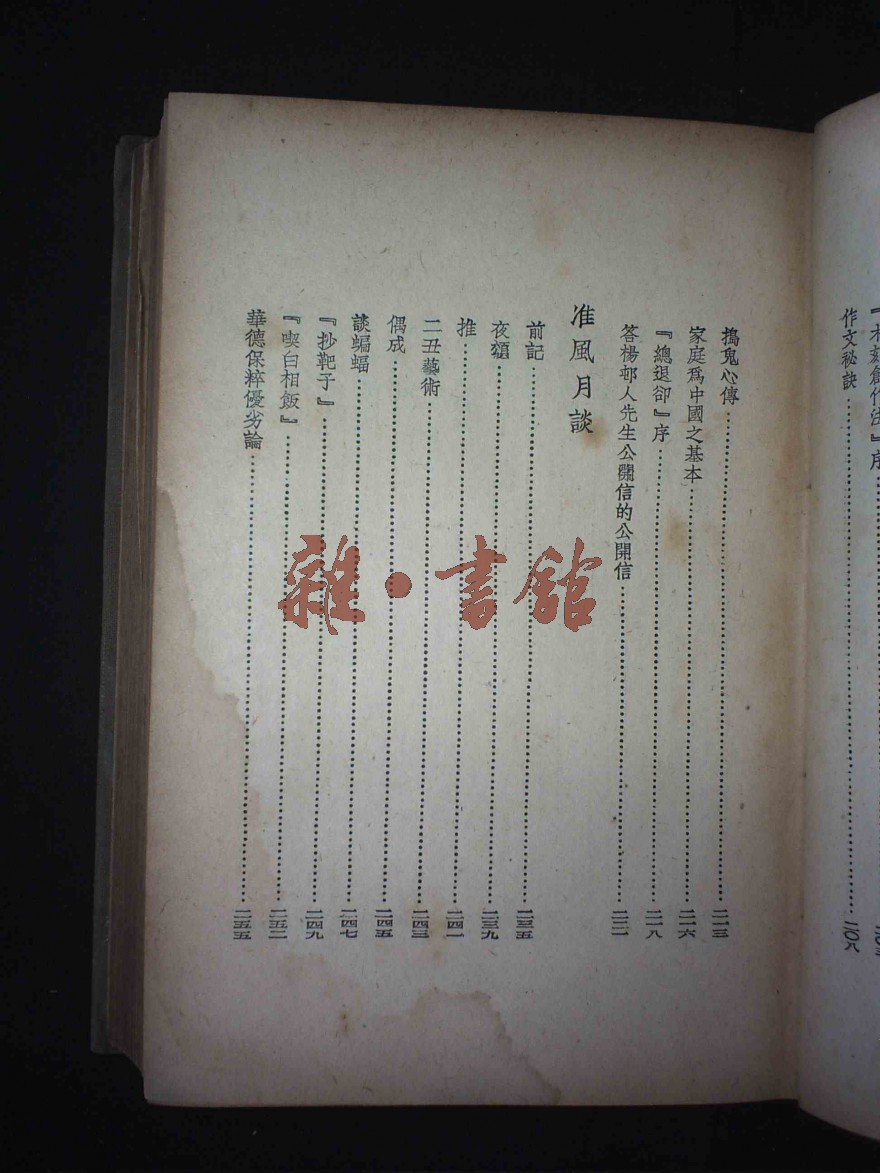 『木刻創作法』序
作文秘訣……二〇八
搗鬼心傳……二一三
家庭爲中國之基本……二一六
『總退卻』序……二一八
答楊邨人先生公開信的公開信……二二一
准風月談
前記……二三五
夜頌……二三九
推……二四一
二丑藝術……二四三
偶成……二四五
談蝙蝠……二四七
『抄靶子』……二四九
『喫白相飯』……二五二
華德保粹優劣論……二五五
雜·書館